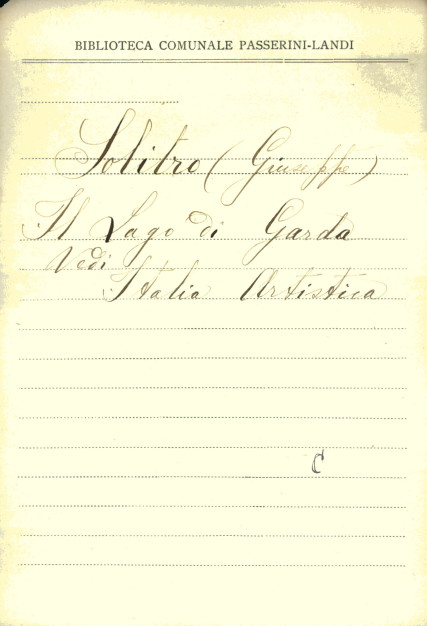 BIBLIOTECA COMUNALE PASSERINI-LANDI
Solitro (Giuseppe)
Il Lago di Garda
Vedi
Italia Artistica
C